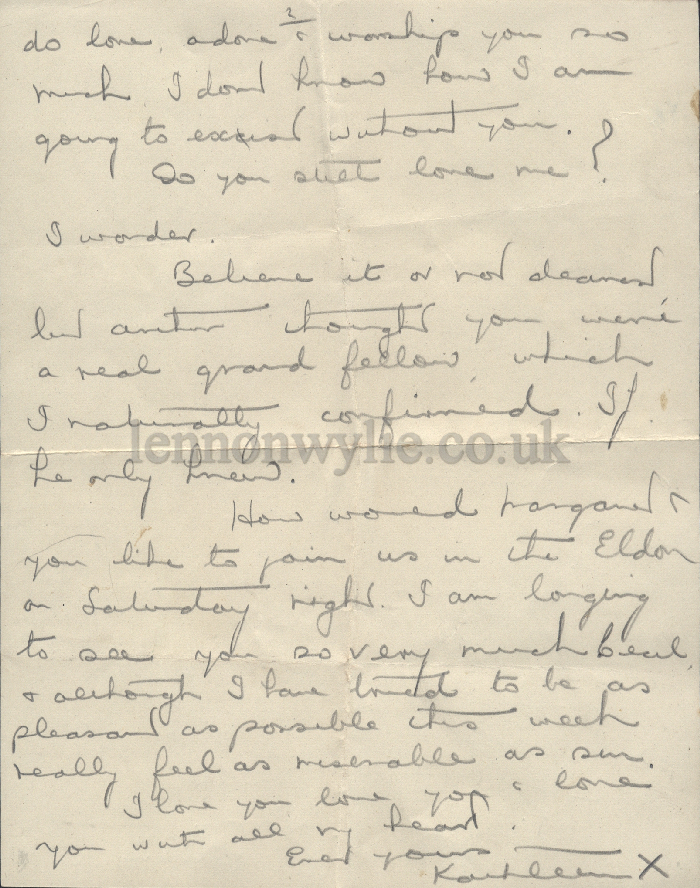 3
do love, adore & worship you so
much I don't know how I am
going to exist without you.
Do you still love me ?
I wonder.
Believe it or not dearest
but thought you were
a real grand fellow, which
I naturally confirmed. If
he only knew.
lennonwylie.co.uk
How would Margaret &
you like to join us in the Eldon
on Saturday night. I am longing
to see you so very much
& although I have tried to be as
pleasant as possible this week
really feel as miserable as sin.
I love you love you & love
you with all my heart.
Ever yours
Kathleen X